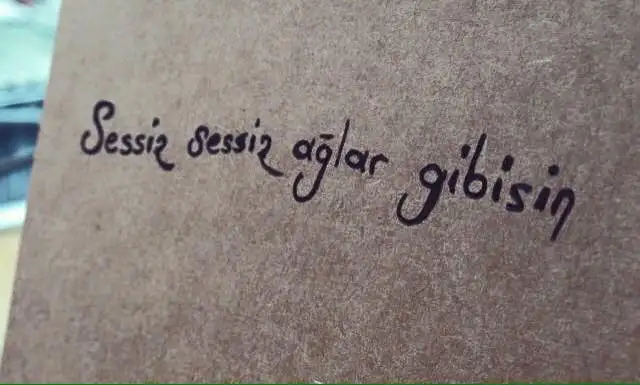 Sessiz sessiz ağlar gibisin